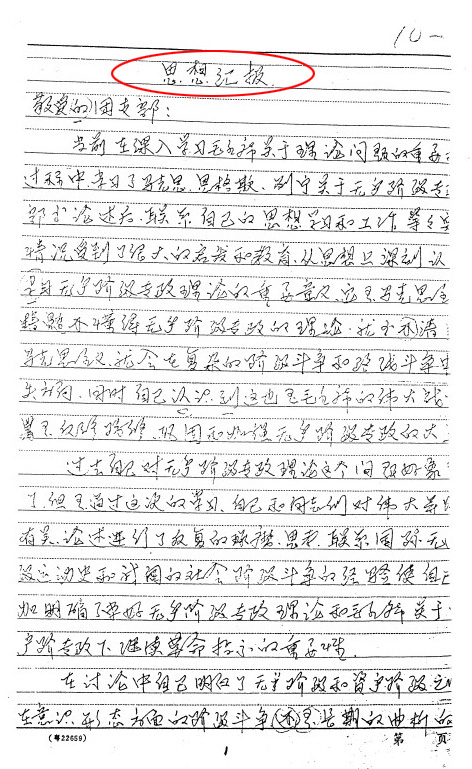 10-
思想汇报
敬爱的团支部：
当前在深入学习毛主席关于理论问题的重要
过程中学习了马克思、恩格斯、列宁关于无产阶级专
部分论述后，联系自己的思想学习和工作等
情况受到了很大的启发和教育，从思想上深刻认
无产阶级专政理论的重要意义，这是马克思
不懂得无产阶级专政的理论，就分不清
马克思主义，就会在复杂的阶级斗争和路线斗争中
失方向，同时自己认识到这也是毛主席的伟大战
巩固和加强无产阶级专政的大
过去自己对无产阶级专政理论这个问题好象
了，但是通过这次的学习，自己和同志们对伟大
有关论述进行了反复的琢磨、思考，联系国际无
级运动史和我国的社会阶级斗争的经验使自己
加明确了学好无产阶级专政理论和毛主席关于
产阶专政下继续革命指示的重要性。
在讨论中自己明确了无产阶级和资产阶级之
在意识形态方面的阶级斗争还是长期的曲折的
(粤22659) 第 页
1